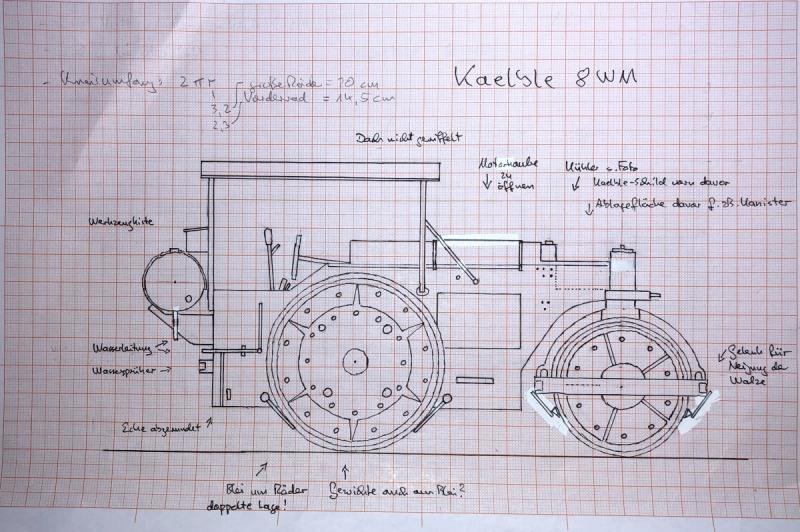 Kaelble 8WM
- Kreisumfang: 2 π r
große Räder = 10 cm
Vorderrad = 14,5 cm
3,2
2,3
Dach nicht geriffelt
Motorhaube
zu
öffnen
Kühler s. Foto
Kaelble-Schild vorn davor
Ablagefläche davor f. zB. Kanister
Werkzeugkiste
Wasserleitung
Wassersprüher
Ecke abgerundet
Gelenk für
Neigung der
Walze
Blei um Räder
doppelte Lage!
Gewichte auch aus Blei?